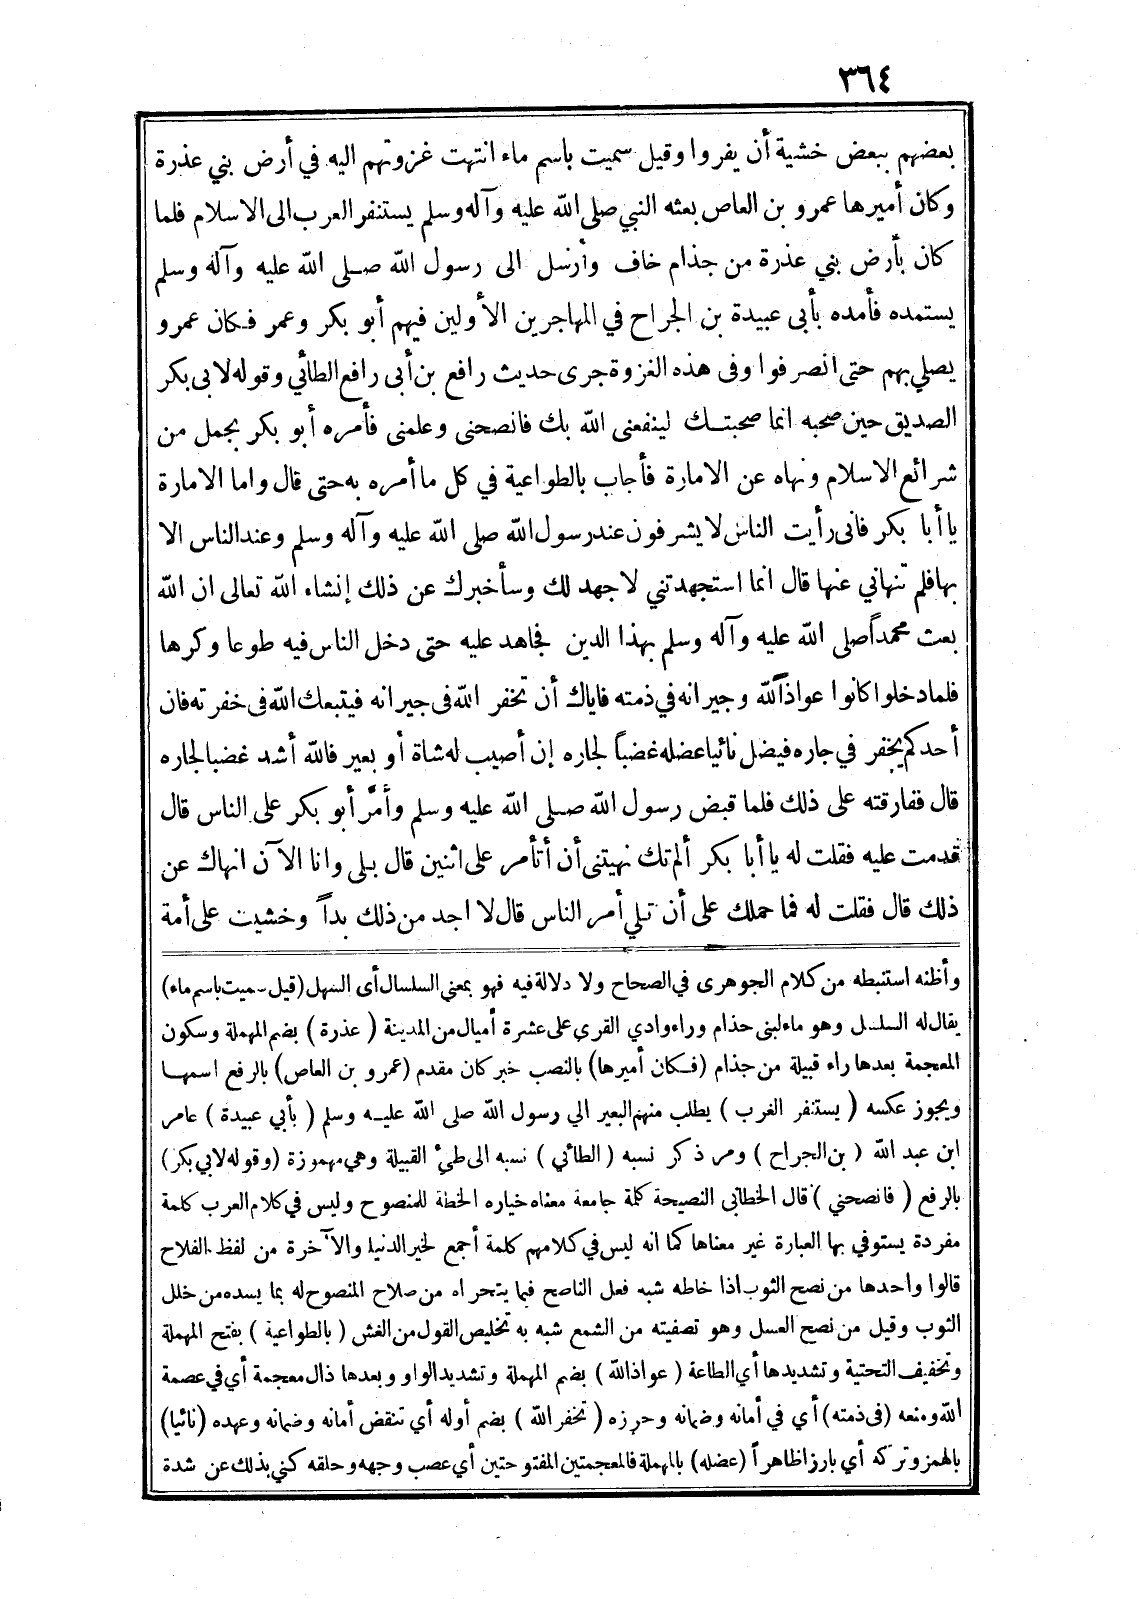 ٣٦٤
بعضهم ببعض خشية أن يفروا وقيل سميت باسم ماء انتهت غزوتهم اليه في أرض بني عذرة
وكان أميرها عمرو بن العاص بعثه النبي صلى الله عليه وآله وسلم يستنفر العرب الى الاسلام فلما
كان بأرض بني عذرة من جذام خاف وأرسل الى رسول الله صلى الله عليه وآله وسلم
يستمده فأمده بأبى عبيدة بن الجراح في المهاجرين الأولين فيهم أبو بكر وعمر فكان عمرو
يصلي بهم حتى انصرفوا وفى هذه الغزوة جرى حديث رافع بن أبى رافع الطائي وقوله لابى بكر
الصديق حين صحبه انما صحبتك لينفعنى الله بك فانصحنى وعلمنى فأمره أبو بكر بجمل من
شرائع الاسلام ونهاه عن الامارة فأجاب بالطواعية في كل ما أمره به حتى قال واما الامارة
يا أبا بكر فانى رأيت الناس لا يشرفون عند رسول الله صلى الله عليه وآله وسلم وعند الناس الا
بها فلم تنهاني عنها قال انما استجهدتني لاجهد لك وسأخبرك عن ذلك إنشاء الله تعالى ان الله
بعث محمداً صلى الله عليه وآله وسلم بهذا الدين فجاهد عليه حتى دخل الناس فيه طوعا وكرها
فلما دخلوا كانوا عواذ الله وجيرانه في ذمته فاياك أن تخفر الله فى جيرانه فيتبعك الله فى خفرته فان
أحدكم يخفر في جاره فيضل نائيا عضله غضباً لجاره إن أصيب له شاة أو بعير فالله أشد غضبا لجاره
قال ففارقته على ذلك فلما قبض رسول الله صلى الله عليه وسلم وأمّر أبو بكر على الناس قال
قدمت عليه فقلت له يا أبا بكر ألم تك نهيتنى أن أتأمر على اثنين قال بلى وانا الآن انهاك عن
ذلك قال فقلت له فما حملك على أن تلي أمر الناس قال لا اجد من ذلك بداً وخشيت على أمة
وأظنه استنبطه من كلام الجوهرى في الصحاح ولا دلالة فيه فهو بمعني السلسال أى السهل (قيل سميت باسم ماء)
يقال له السلسل وهو ماء لبنى حذام وراء وادي القرى على عشرة أميال من المدينة ( عذرة ) بضم المهملة وسكون
المعجمة بعدها راء قبيلة من جذام (فكان أميرها) بالنصب خبر كان مقدم (عمرو بن العاص) بالرفع اسمها
ويجوز عكسه ( يستنفر الغرب ) يطلب منهم البعير الي رسول الله صلى الله عليه وسلم ( بأبي عبيدة ) عامر
ابن عبد الله ( بن الجراح ) ومر ذكر نسبه ( الطائي ) نسبه الى طيئ القبيلة وهي مهموزة (وقوله لابي بكر)
بالرفع ( فانصحني ) قال الخطابى النصيحة كلمة جامعة معناه خياره الخطة للمنصوح وليس في كلام العرب كلمة
مفردة يستوفي بها العبارة غير معناها كما انه ليس في كلامهم كلمة أجمع لخير الدنيا والآخرة من لفظ الفلاح
قالوا واحدها من نصح الثوب اذا خاطه شبه فعل الناصح فيما يتحراه من صلاح المنصوح له بما يسده من خلل
الثوب وقيل من نصح العسل وهو تصفيته من الشمع شبه به تخليص القول من الغش ( بالطواعية ) بفتح المهملة
وتخفيف التحتية وتشديدها أي الطاعة ( عواذ الله ) بضم المهملة وتشديد الواو وبعدها ذال معجمة أي في عصمة
الله ومنعه (فى ذمته) أي في أمانه وضمانه وحرزه ( تخفر الله ) بضم أوله أي تنقض أمانه وضمانه وعهده (نائيا)
بالهمز وتركه أي بارزا ظاهراً (عضله) بالمهملة فالمعجمتين المفتوحتين أي عصب وجهه وحلقه كني بذلك عن شدة